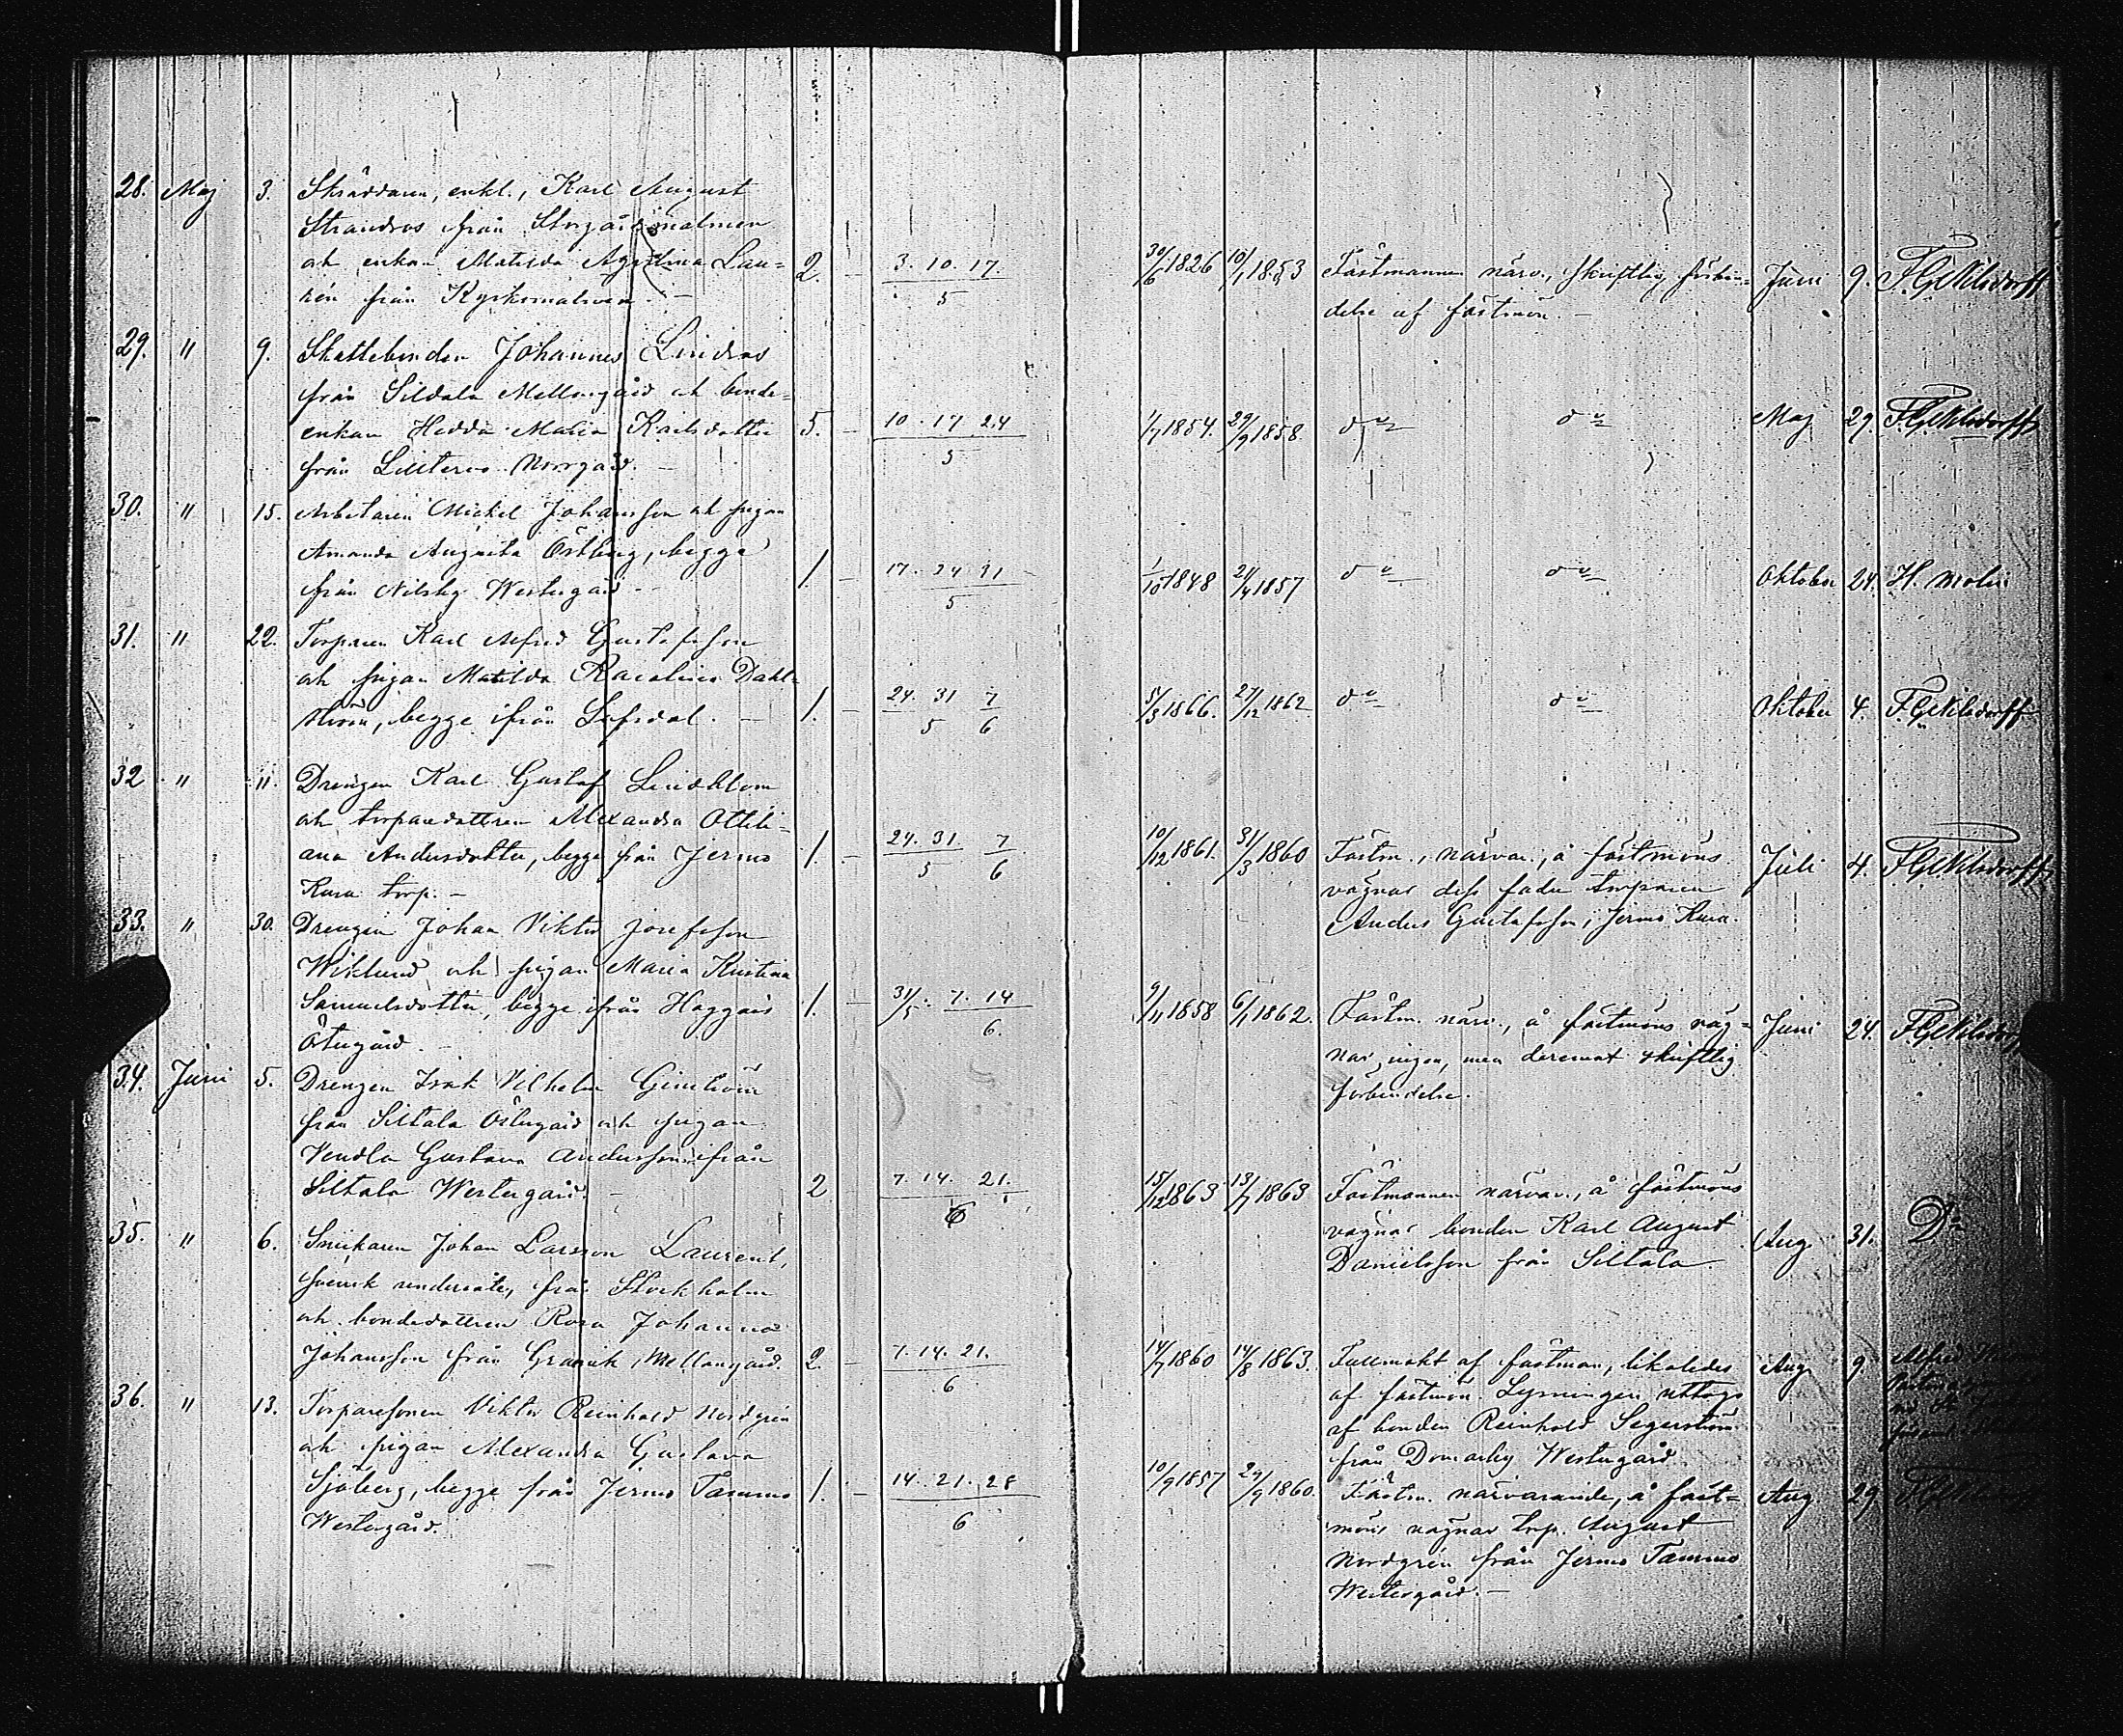 28. Maj 3. Skräddaren, enkl., Karl August
Strandros från Storgårdsmalmen
och enkan Matilda Agustina Lau=
rén från Kyrkomalmen. — 2. — 3. 10. 17. 5 30/6 1826 10/1 1853 Fästmannen närv., skriftlig förbin= Juni 9. F. G. Eklsdorff
delse af fästmön. —
29. " 9. Skattebonden Johannes Lindros
från Sildala Mellangård och bonde=
enkan Hedda Maria Karlsdotter 5. — 10. 17 24 5 1/7 1854. 29/9 1858. do do Maj 29.
från Norrgård. —
30. " 15. Arbetaren Mickel Johansson och pigan
Amanda Augusta Östberg, begge
från Nilsby Westergård — 1. — 17. 24 31 5 1/10 1848 24/4 1857 do do Oktober 24. H. Molin
31. " 22. Torparen Karl Alfred Gustafsson
och pigan Matilda Karolina Dahl=
ström, begge ifrån Lofsdal. — 1. — 24. 31 7 5 6 5/3 1866. 27/12 1862 do do Oktober 4.
32 " " Drengen Karl Gustaf Lindblom
och torparedottren Alexandra Ottili=
ana Andersdotter, begge från Jermo 1. — 24. 31 7 5 6 10/12 1861. 31/3 1860 Fästm., närvar., å fästmöns Juli 4.
Kura torp. — vägnar dess fader torparen
Anders Gustafsson, i Jermo Kura.
33. " 30. Drengen Johan Viktor Josefsson
Wiklund och pigan Maria Kristina
Samuelsdotter, begge ifrån Haggais 1. — 31/5. 7. 14 6. 9/11 1858 6/1 1862. Fästm. närv., å fästmöns väg= Juni 24.
Östergård. — nar ingen, men deremot skriftlig
förbindelse.
34. Juni 5. Drengen Isak Vilhelm
från Siltala Östergård och pigan
Vendla Gustava Andersson ifrån
Siltala Westergård. — 2 7. 14. 21. 6 15/12 1863 13/7 1863 Fästmannen närvar., å fästmöns
vägnar bonden Karl August Aug. 31. Do
Danielsson från Siltala
35. " 6. Snickaren Johan Larsson Laurent,
svensk undersåte, från Stockholm
och bondedottren Rosa Johanna
Johansson från Granvik Mellangård. 2. — 7. 14. 21. 6 14/7 1860 14/8 1863. Fullmakt af fästman, likaledes Aug 9 Alfred
af fästmön. Lysningen uttogs
af bonden Reinhold Segerström
från Domarby Westergård
36. " 13. Torparesonen Viktor Reinhold Nordgrén
och pigan Alexandra Gustava
Sjöberg, begge från Jermo Tammo 1. — 14. 21. 28 6 10/9 1857 29/9 1860. Fästm. närvarande, å fäst= Aug 29
Westergård. möns vägnar torp. August
Nordgrén från Jermo Tammo
Westergård. —